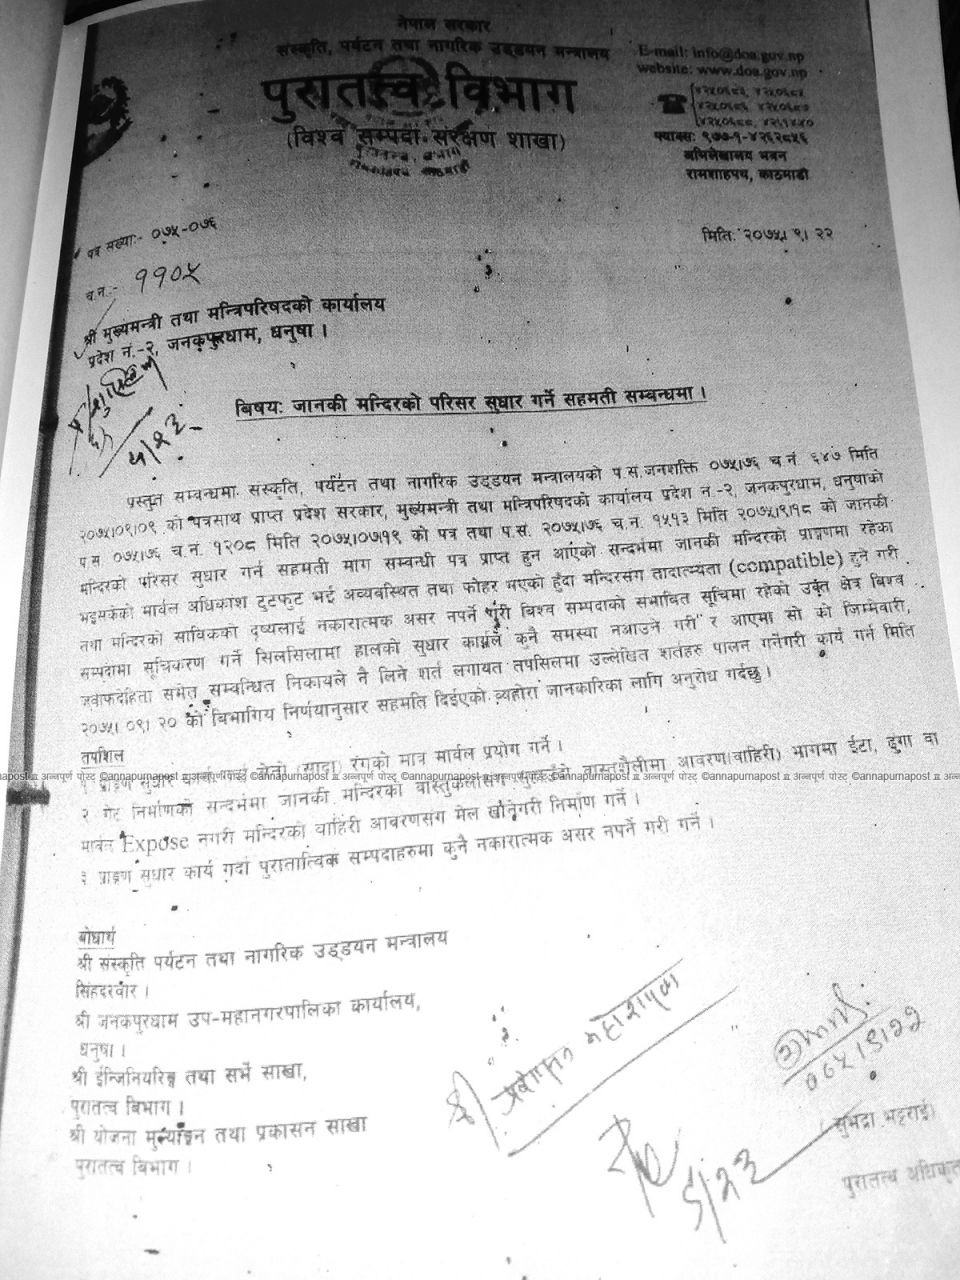 नेपाल सरकार
संस्कृति, पर्यटन तथा नागरिक उड्डयन मन्त्रालय
पुरातत्त्व विभाग
(विश्व सम्पदा संरक्षण शाखा)
E-mail: info@doa.gov.np
website: www.doa.gov.np
फ्याक्सः ९७७-१-४२६२८५६
अभिलेखालय भवन
रामशाहपथ, काठमाडौं
पत्र संख्याः- ०७५-०७६
मितिः २०७५।९।२२
च.नं.- ११०५
श्री मुख्यमन्त्री तथा मन्त्रिपरिषदको कार्यालय
प्रदेश नं.-२, जनकपुरधाम, धनुषा ।
५/२३
बिषयः जानकी मन्दिरको परिसर सुधार गर्ने सहमती सम्बन्धमा ।
प्रस्तुत सम्बन्धमा संस्कृति, पर्यटन तथा नागरिक उड्डयन मन्त्रालयको प.स.जनशक्ति ०७५।७६ च.नं. ६४७ मिति
२०७५।०९।०९ को पत्रसाथ प्राप्त प्रदेश सरकार, मुख्यमन्त्री तथा मन्त्रिपरिषदको कार्यालय प्रदेश नं.-२, जनकपुरधाम, धनुषाको
प.स. ०७५।७६ च.नं. १२०८ मिति २०७५।०७।१९ को पत्र तथा प.स. २०७५।७६ च.नं. १५१३ मिति २०७५।९।१८ को जानकी
मन्दिरको परिसर सुधार गर्न सहमती माग सम्बन्धी पत्र प्राप्त हुन आएको सन्दर्भमा जानकी मन्दिरको प्राङ्गणमा रहेका
भइसकेको मार्वल अधिकाश टुटफुट भई अव्यवस्थित तथा फोहर भएको हुँदा मन्दिरसंग तादात्म्यता (compatible) हुने गरी
तथा मन्दिरको साविकको दृष्यलाई नकारात्मक असर नपर्ने गरी विश्व सम्पदाको संभावित सूचिमा रहेको उक्त क्षेत्र विश्व
सम्पदामा सूचिकरण गर्ने सिलसिलामा हालको सुधार कार्यले कुनै समस्या नआउने गरी र आएमा सो को जिम्मेवारी,
जवाफदेहिता समेत सम्बन्धित निकायले नै लिने शर्त लगायत तपसिलमा उल्लेखित शर्तहरु पालन गर्नेगरी कार्य गर्न मिति
२०७५।०९।२० को बिभागिय निर्णयानुसार सहमति दिईएको व्यहोरा जानकारिका लागि अनुरोध गर्दछु ।
तपशिल
१ प्राङ्गण सुधार (सादा) रंगको मात्र मार्वल प्रयोग गर्ने ।
©annapurnapost अन्नपूर्ण पोस्ट् ©annapurnapost अन्नपूर्ण पोस्ट् ©annapurnapost अन्नपूर्ण पोस्ट् ©annapurnapost अन्नपूर्ण पोस्ट् ©annapurnapost
२ गेट निर्माणको सन्दर्भमा जानकी मन्दिरको वास्तुकलासंग वास्तुशैलीमा आवरण(वाहिरी) भागमा ईटा, ढुगा वा
मार्वल Expose नगरी मन्दिरको वाहिरी आवरणसंग मेल खानेगरी निर्माण गर्ने ।
३ प्राङ्गण सुधार कार्य गर्दा पुरातात्विक सम्पदाहरुमा कुनै नकारात्मक असर नपर्ने गरी गर्ने ।
बोधार्थ
श्री संस्कृति पर्यटन तथा नागरिक उड्डयन मन्त्रालय
सिंहदरवार ।
श्री जनकपुरधाम उप-महानगरपालिका कार्यालय,
धनुषा ।
श्री ईन्जिनियरिङ्ग तथा सर्भे साखा,
पुरातत्व बिभाग ।
श्री योजना मुल्याङ्कन तथा प्रकासन साखा
पुरातत्व बिभाग ।
०७५।९।२२
९/२३
(सुभद्रा भट्टराई)
पुरातत्व अधिकृत